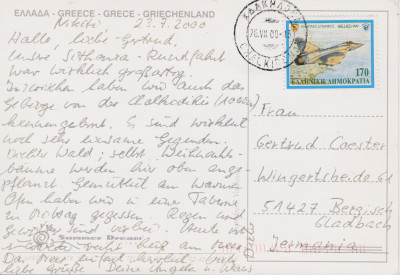 ΕΛΛΑΔΑ - GREECE - GRECE - GRIECHENLAND
23.7.2000
Hallo, liebe Gertrud,
unsre Sithonia-Rundfahrt
war wirklich großartig.
Inzwischen haben wir auch das
Gebirge von der Chalkidiki
kennengelernt. Es sind wirklich
noch sehr einsame Gegenden.
Dichter Wald; selbst Weihnachts-
bäume werden hier oben ange-
pflanzt. Gemütlich am warmen
Ofen haben wir in einer Taverne
in gegessen. Regen und
sind vorbei. Heute ist
wieder am Meer
Das Meer einfach herrlich. Viele
liebe Grüße Deine Angela u. Klaus
Summer Dream
ΧΑΛΚΙΔΙΚΗΣ
26.VII.00
170
ΕΛΛΗΝΙΚΗ ΔΗΜΟΚΡΑΤΙΑ
Frau
Gertrud Coester
Wingertsheide 61
51427 Bergisch
Gladbach
Jermania